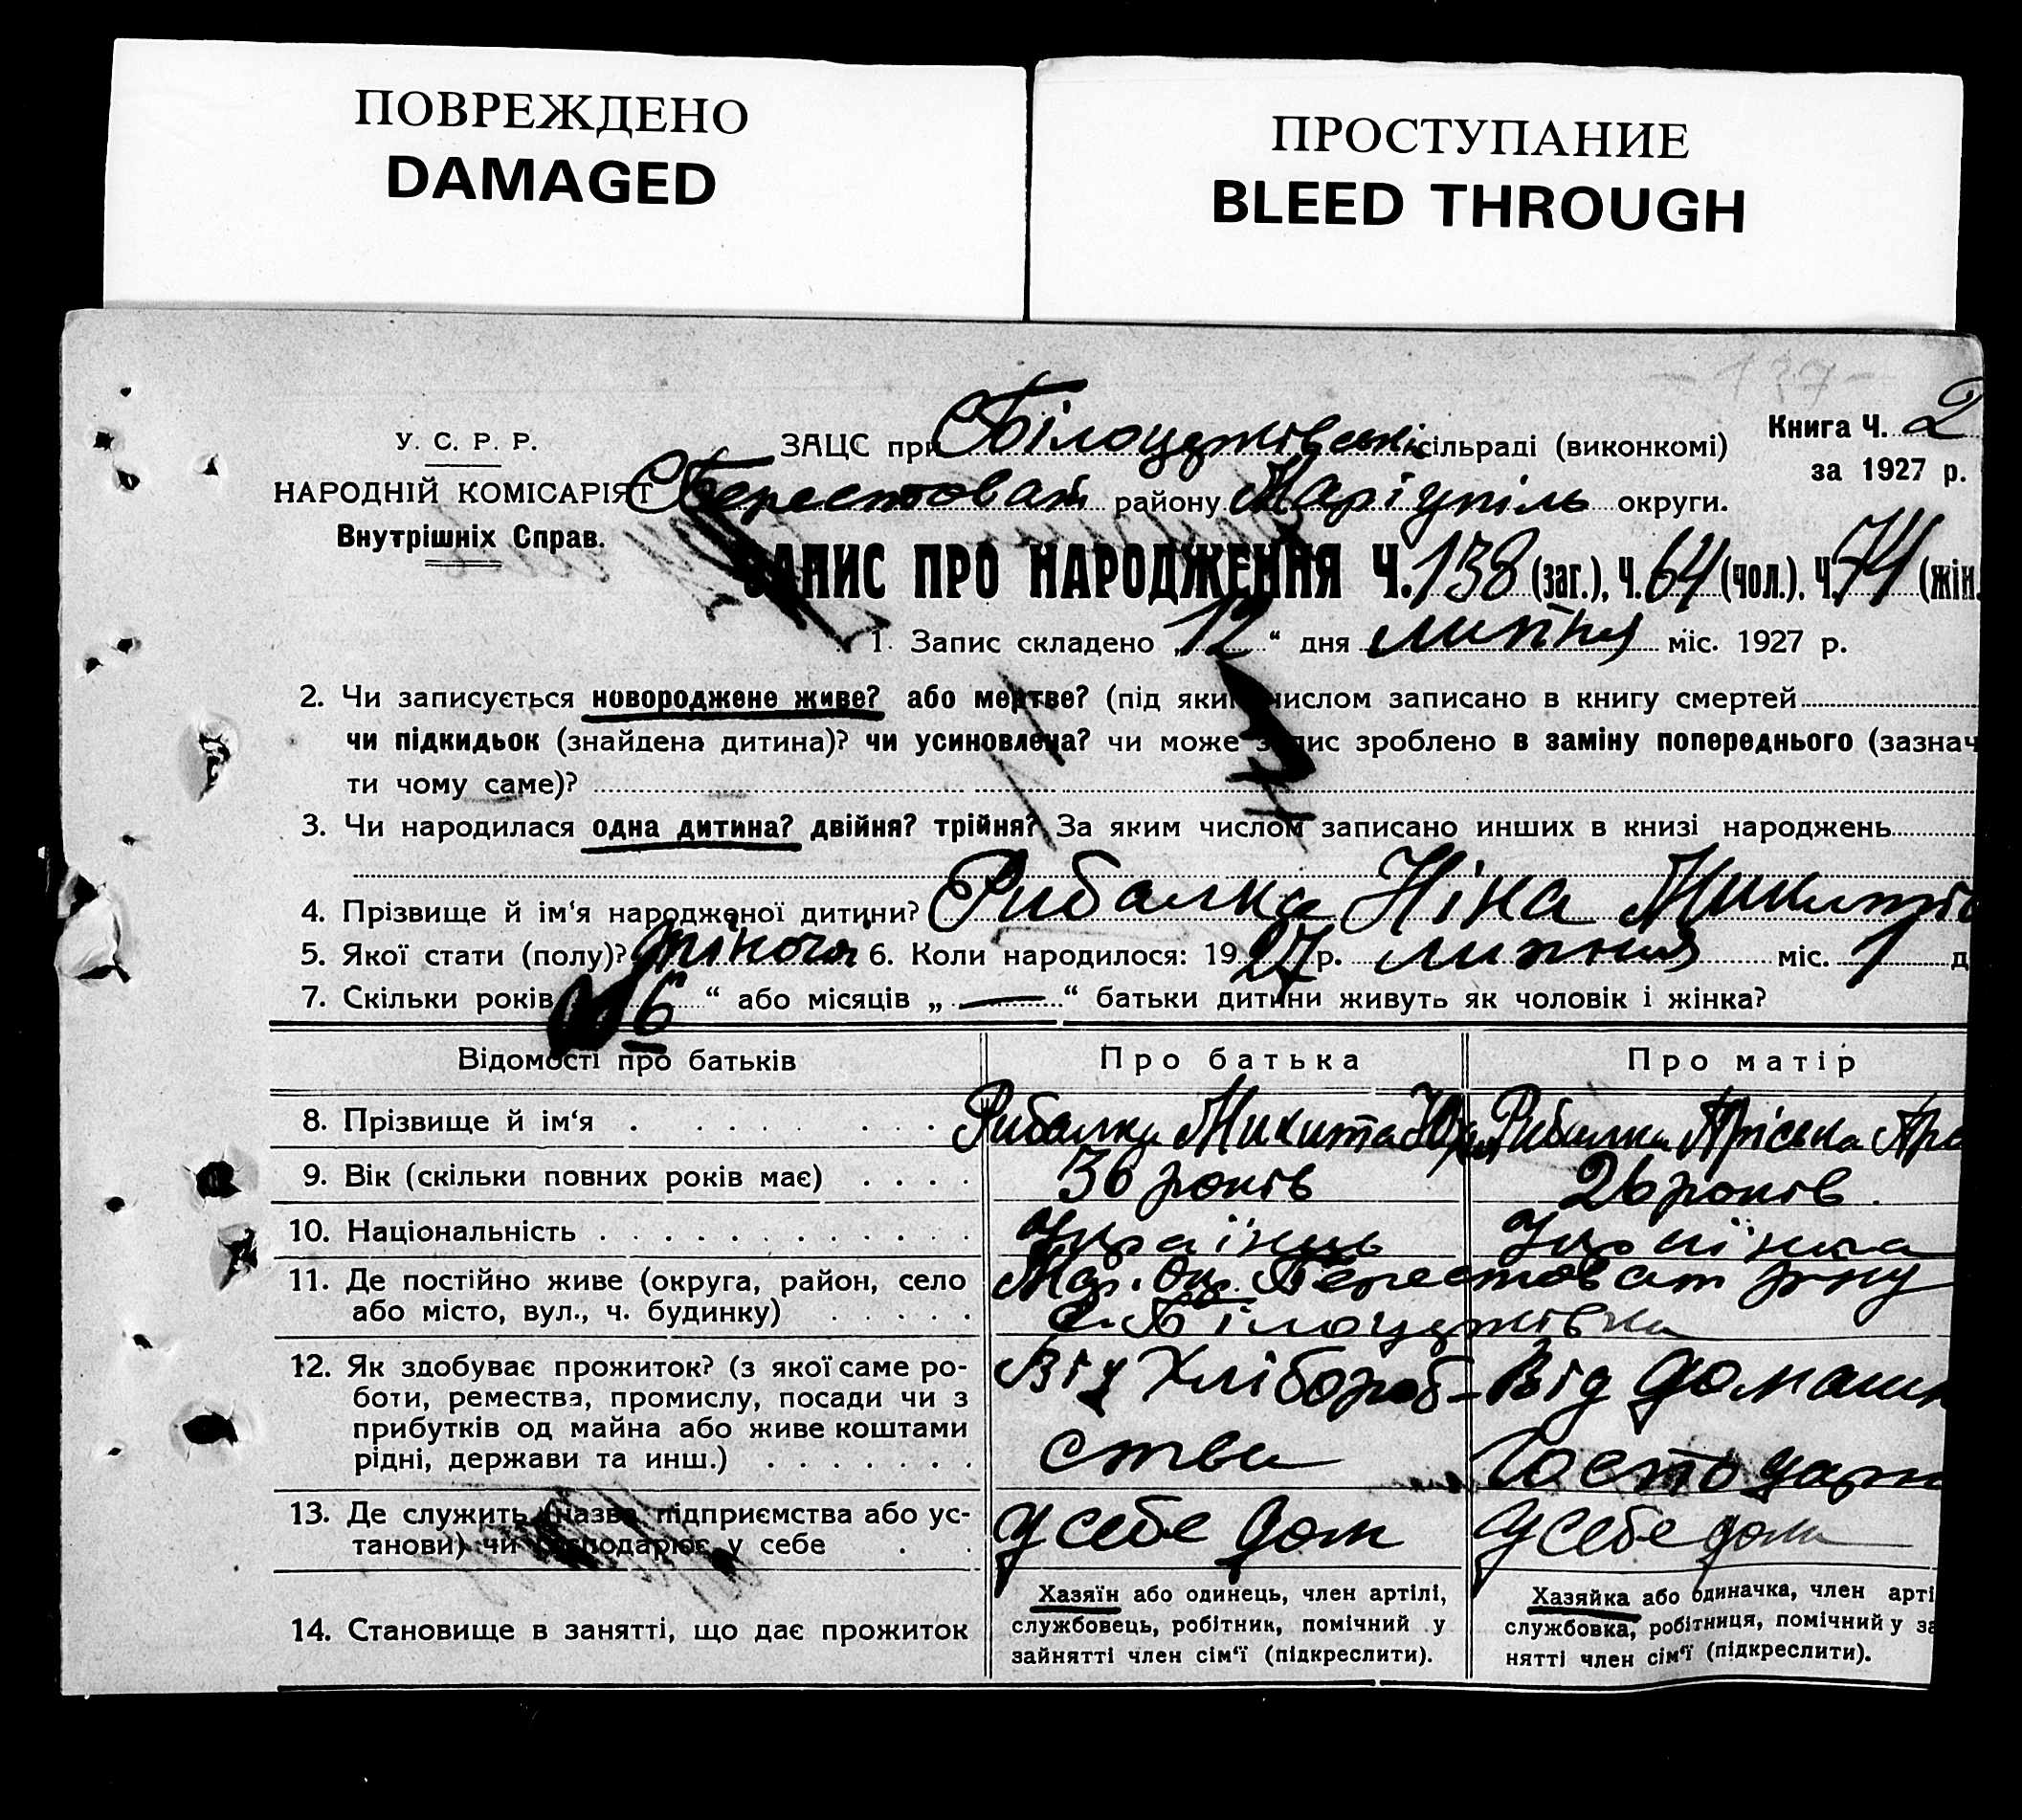 ПОВРЕЖДЕНО
DAMAGED
ПРОСТУПАНИЕ
BLEED THROUGH
У. С. Р. Р.
НАРОДНІЙ КОМІСАРІЯТ
Внутрішніх Справ.
ЗАЦС при Білоцерківські сільраді (виконкомі)
Берестоват району Маріупіль округи.
Книга Ч. 2
за 1927 р.
ЗАПИС ПРО НАРОДЖЕННЯ Ч. 138 (заг.), Ч. 64 (чол.), Ч. 74 (жін.
1. Запис складено „12“ дня липня міс. 1927 р.
2. Чи записується новороджене живе? або мертве? (під яким числом записано в книгу смертей
чи підкидьок (знайдена дитина)? чи усиновлена? чи може запис зроблено в заміну попереднього (зазнач
ти чому саме)?
3. Чи народилася одна дитина? двійня? трійня? За яким числом записано инших в книзі народжень
4. Прізвище й ім‘я народженої дитини? Рибалка Ніна Микит
5. Якої стати (полу)? жіноча 6. Коли народилося: 1927 р. липня міс. 1 д
7. Скільки років 6 “ або місяців „ — “ батьки дитини живуть як чоловік і жінка?
Відомості про батьків
Про батька
Про матір
8. Прізвище й ім‘я
Рибалка Микита
Рибалка Пріська
9. Вік (скільки повних років має)
36 років
26 років.
10. Національність
Українць
Українка
11. Де постійно живе (округа, район, село
або місто, вул., ч. будинку)
Мар. Ок. Берестоват р-ну
с. Білоцерківка
12. Як здобуває прожиток? (з якої саме ро-
боти, ремества, промислу, посади чи з
прибутків од майна або живе коштами
рідні, держави та инш.)
Від Хлібороб-
ства
Від домашн
Господарс
13. Де служить (назва підприємства або ус-
танови) чи господарює у себе
У себе дом
У себе дом
14. Становище в занятті, що дає прожиток
Хазяїн або одинець, член артілі,
службовець, робітник, помічний у
зайнятті член сім‘ї (підкреслити).
Хазяйка або одиначка, член арті
службовка, робітниця, помічний у за
нятті член сім‘ї (підкреслити).